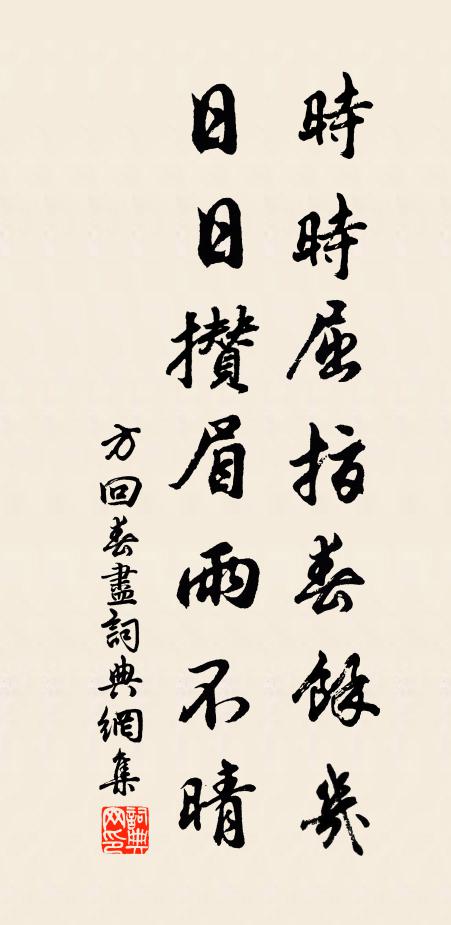 時時屈指春餘幾
日日攢眉雨不晴
方回春盡詞典網集
詞典網印